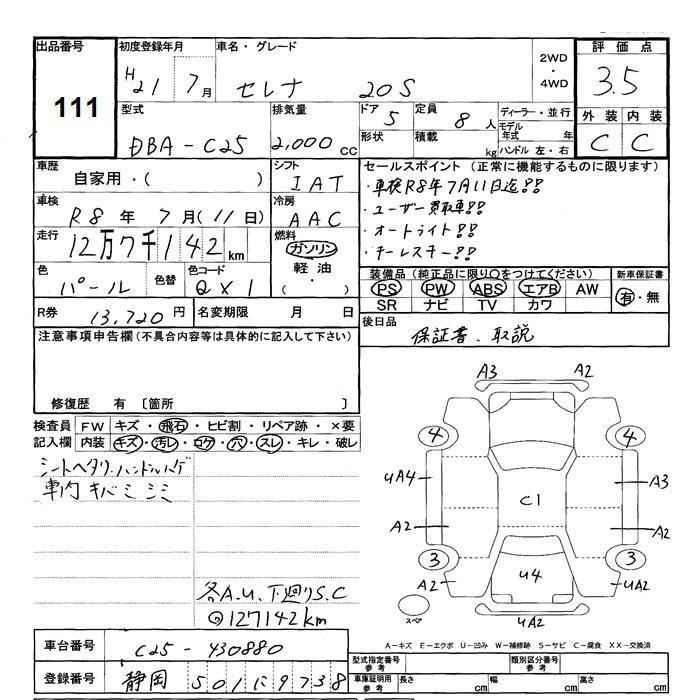 出品番号
111
初度登録年月
H21 年 7月
車名・グレード
セレナ 20S
2WD
・
4WD
評価点
3.5
外装 内装
C C
型式
DBA-C25
排気量
2,000 cc
ドア 5
定員 8 人
形状
積載 kg
ディーラー・並行
モデル年式 年
ハンドル 左・右
車歴
自家用・( )
シフト
IAT
車検
R8年 7月(11日)
冷房
AAC
走行
12万7千142 km
燃料
ガソリン
軽油
・( )
色
パール
色替
色コード
QX1
R券 13,720円
名変期限 月 日
セールスポイント (正常に機能するものに限ります)
・車検R8年7月11日迄!!
・ユーザー買取車!!
・オートライト!!
・キーレスキー!!
装備品 (純正品に限り○をつけてください)
PS PW ABS エアB AW
SR ナビ TV カワ
新車保証書
有・無
後日品
保証書、取説
注意事項申告欄(不具合内容等は具体的に記入して下さい)
修復歴 有 〔箇所 〕
検査員記入欄
FW キズ・飛石・ヒビ割・リペア跡・×要
内装 キズ・汚レ・コゲ・穴・スレ・キレ・破レ
シートヘタリ・ハンドルハゲ
車内 キバミ シミ
各A.U、下廻りS.C
◎127142km
A3 A2
4 4
UA4 A3
C1
A2 A2
3 3
A2 U4 UA2
スペア
UA2
A-キズ E-エクボ U-凹み W-補修跡 S-サビ C-腐食 XX-交換済
車台番号
C25-430880
登録番号
静岡 501 に 9738
型式指定番号
参考
類別区分番号
参考
車庫証明用
参考
長さ cm 幅 cm 高さ cm